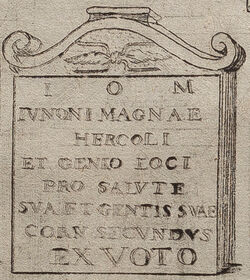 I O M
IVNONI MAGNAE
HERCOLI
ET GENIO LOCI
PRO SALVTE
SVA ET GENTIS SVAE
CORN SECVNDVS
EX VOTO